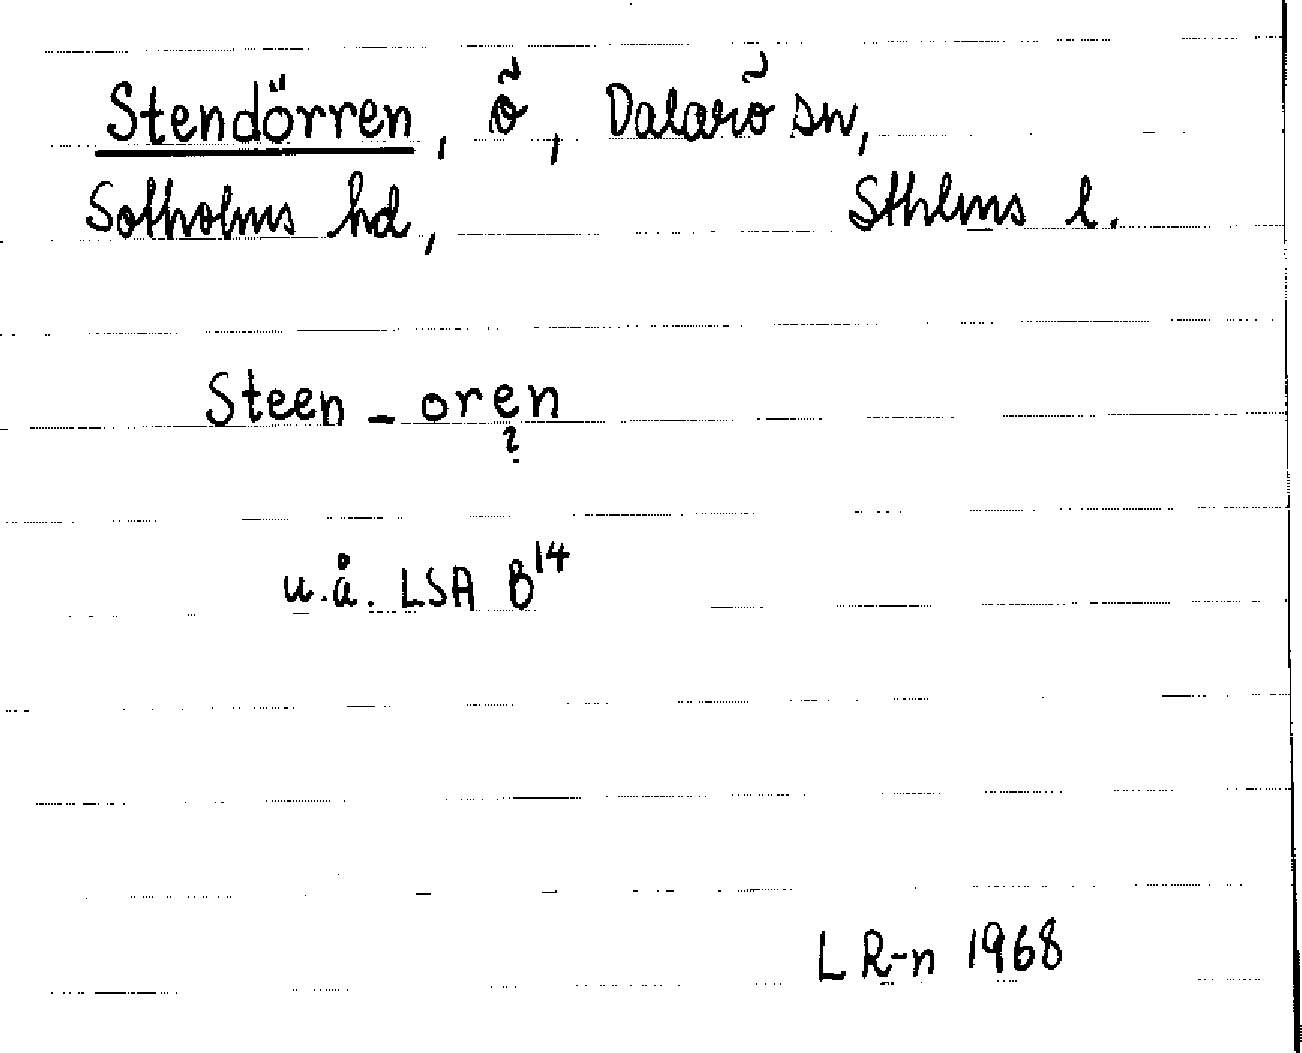 Stendörren, ö, Dalarö sn,
Sotholms hd, Sthlms l.
Steen - oren
?
u.å. LSA B14
L R-n 1968